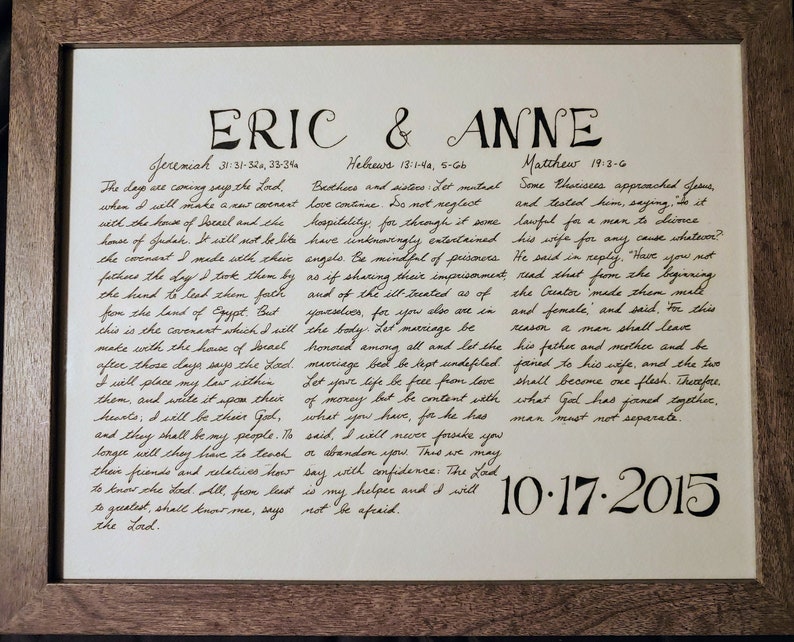 ERIC & ANNE
Jeremiah 31:31-32a, 33-34a
The days are coming says the Lord,
when I will make a new covenant
with the house of Israel and the
house of Judah. It will not be like
the covenant I made with their
fathers the day I took them by
the hand to lead them forth
from the land of Egypt. But
this is the covenant which I will
make with the house of Israel
after those days, says the Lord.
I will place my law within
them, and write it upon their
hearts; I will be their God,
and they shall be my people. No
longer will they have to teach
their friends and relatives how
to know the Lord. All, from least
to greatest, shall know me, says
the Lord.
Hebrews 13:1-4a, 5-6b
Brothers and sisters: Let mutual
love continue. Do not neglect
hospitality, for through it some
have unknowingly entertained
angels. Be mindful of prisoners
as if sharing their imprisonment,
and of the ill-treated as of
yourselves, for you also are in
the body. Let marriage be
honored among all and let the
marriage bed be kept undefiled.
Let your life be free from love
of money but be content with
what you have, for he has
said, I will never forsake you
or abandon you. Thus we may
say with confidence: The Lord
is my helper and I will
not be afraid.
Matthew 19:3-6
Some Pharisees approached Jesus,
and tested him, saying, "Is it
lawful for a man to divorce
his wife for any cause whatever?"
He said in reply, "Have you not
read that from the beginning
the Creator 'made them male
and female,' and said, 'For this
reason a man shall leave
his father and mother and be
joined to his wife, and the two
shall become one flesh. Therefore,
what God has joined together,
man must not separate.
10·17·2015